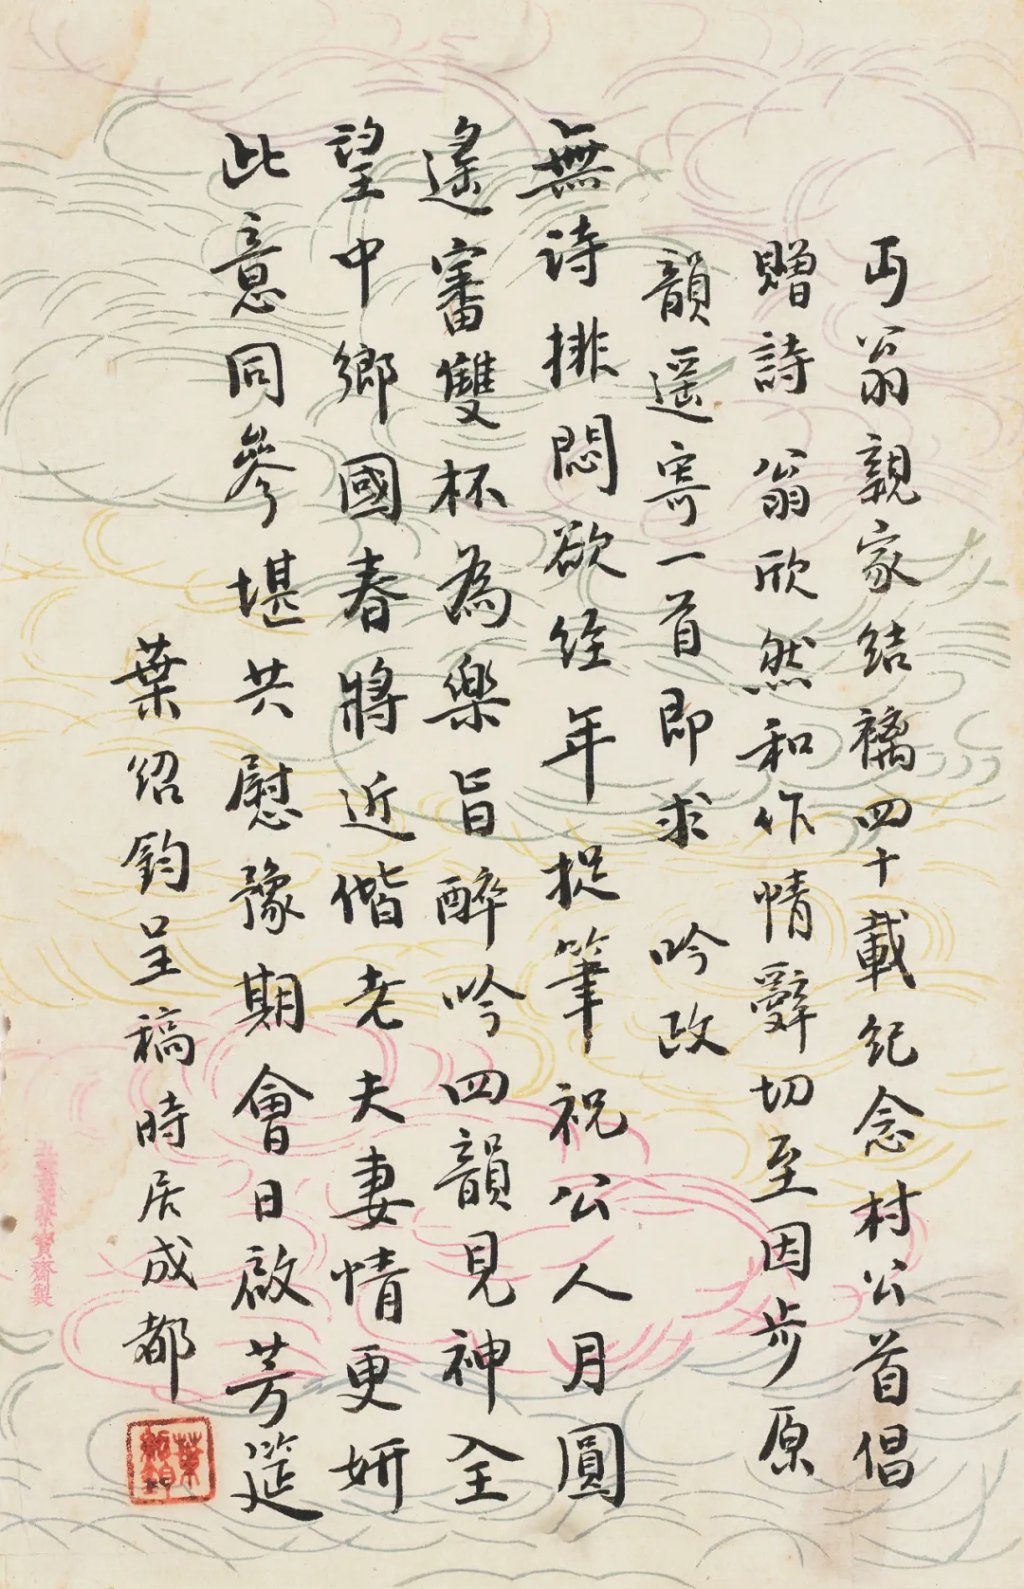 丏翁親家結褵四十載紀念村公首倡
贈詩翁欣然和作情辭切至因步原
韻遥寄一首即求　吟政
無詩排悶欲經年捉筆祝公人月圓
遙審雙杯為樂旨醉吟四韻見神全
望中鄉國春將近偕老夫妻情更妍
此意同參堪共慰豫期會日啟芳筵
葉紹鈞呈稿時居成都
葉紹鈞
榮寶齋製